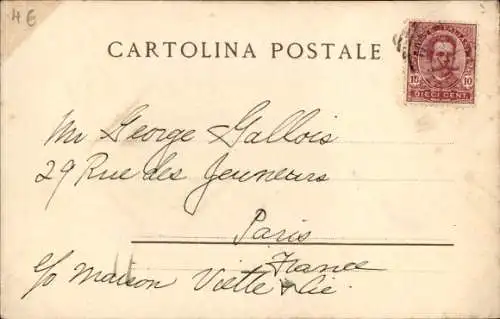 4€
CARTOLINA POSTALE
10 10
DIECI CENT.
Mr George Gallois
29 Rue des Jeuneurs
Paris
France
c/o Maison Viette & Cie.